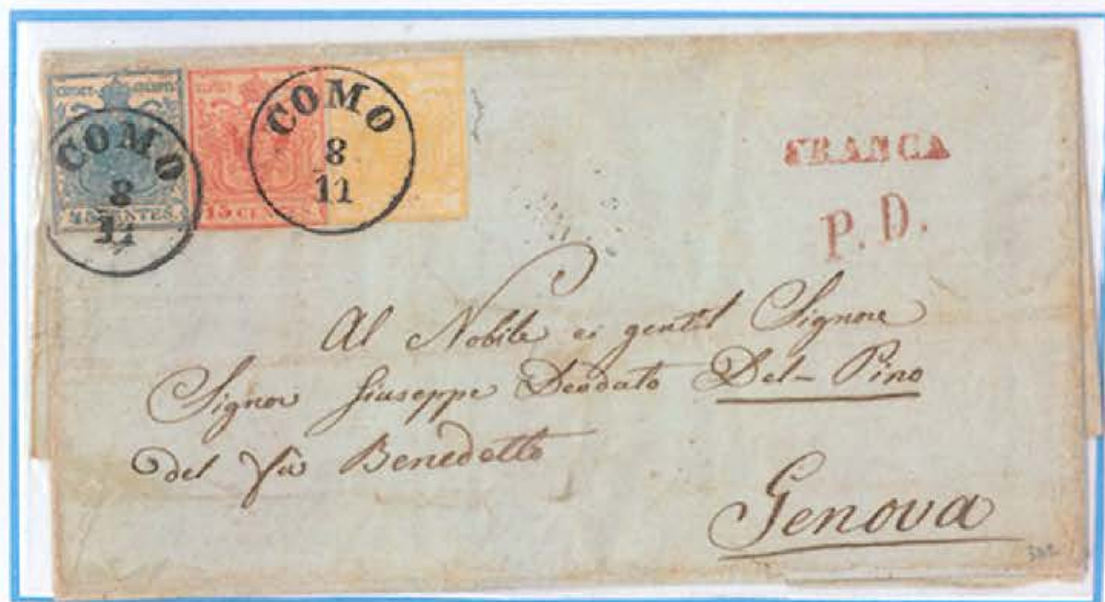 COMO
8
11
45 CENTES.
15 CEN
COMO
8
11
FRANCA
P. D.
Al Nobile ei gentil Signore
Signor Giuseppe Deodato Del-Pino
del fu Benedetto
Genova